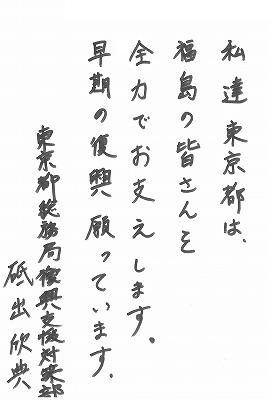 私達東京都は、
福島の皆さんを
全力でお支えします。
早期の復興願っています。
東京都総務局復興支援対策部
砥出欣典